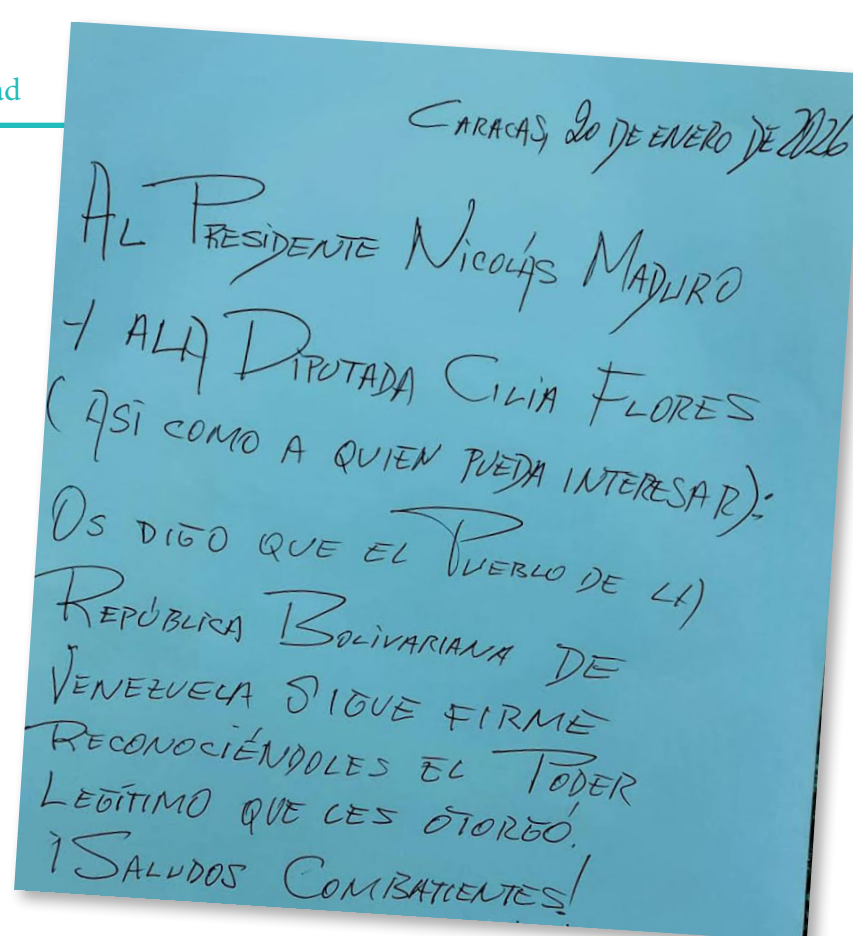 ad
CARACAS, 20 DE ENERO DE 2026
AL PRESIDENTE NICOLÁS MADURO
Y A LA DIPUTADA CILIA FLORES
(ASÍ COMO A QUIEN PUEDA INTERESAR):
OS DIGO QUE EL PUEBLO DE LA
REPÚBLICA BOLIVARIANA DE
VENEZUELA SIGUE FIRME
RECONOCIÉNDOLES EL PODER
LEGÍTIMO QUE LES OTORGÓ.
¡SALUDOS COMBATIENTES!